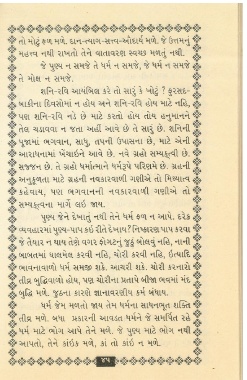 તો મોટું ફળ મળે. દાન-ત્યાગ-સત્ત્વ-ઔદાર્ય મળે. જે ઉત્તમનું
મહત્વ નથી રાખતો તેને વાતાવરણ સ્વચ્છ મળતું નથી.
જે પુણ્ય ન સમજે તે ધર્મ ન સમજે, જે ધર્મ ન સમજે
તે મોક્ષ ન સમજે.
શનિ-રવિ આયંબિલ કરે તો સારું કે ખોટું ? ફુરસદ-
બાકીના દિવસોમાં ન હોય અને શનિ-રવિ હોય માટે નહિ,
પણ શનિ-રવિ નડે છે માટે કરતો હોય તોય હનુમાનને
તેલ ચડાવવા ન જતા અહીં આવે છે તે સારું છે. શનિની
પૂજામાં ભગવાન, સાધુ, તપની ઉપાસના છે, માટે એની
આરાધનામાં ખેંચાઈને આવે છે. નવે ગ્રહો સમ્યક્ત્વી છે.
સજ્જન છે. તે ગ્રહો ધર્માત્માને ધર્મરૂપે પરિણમે છે. ગ્રહની
અનુકૂળતા માટે ગ્રહની નવકારવાળી ગણીએ તો મિથ્યાત્વ
કહેવાય, પણ ભગવાનની નવકારવાળી ગણીએ તો
સમ્યક્ત્વના માર્ગે લઈ જાય.
પુણ્ય જેને દેખાતું નથી તેને ધર્મ ફળ ન આપે. દરેક
વ્યવહારમાં પુણ્ય-પાપ કઈ રીતે દેખાય? નિષ્કારણ પાપ કરવા
જે તૈયાર ન થાય તેણે વગર ફોગટનું જુઠું બોલવું નહિ, નાની
બાબતમાં ધાલમેલ કરવી નહિ, ચોરી કરવી નહિ, ઇત્યાદિ
ભાવનાવાળો ધર્મ સમજી શકે. આચરી શકે. ચોરી કરનારો
તીવ્ર બુદ્ધિવાળો હોય, પણ ચોરીના પ્રતાપે બીજા ભવમાં મંદ
બુદ્ધિ મળે. જુઠના કારણે જ્ઞાનાવરણીય કર્મ બંધાય.
ધર્મ જેમ મળતો જાય તેમ ધર્મના સાધનભૂત શક્તિ
તીવ્ર મળે. બધા પ્રકારની આવડત ધર્મને જે સમર્પિત રહે
ધર્મ માટે ભોગ આપે તેને મળે. જે પુણ્ય માટે ભોગ નથી
આપતો, તેને કાંઇક મળે, કાં તો કાંઇ ન મળે.
૪૫